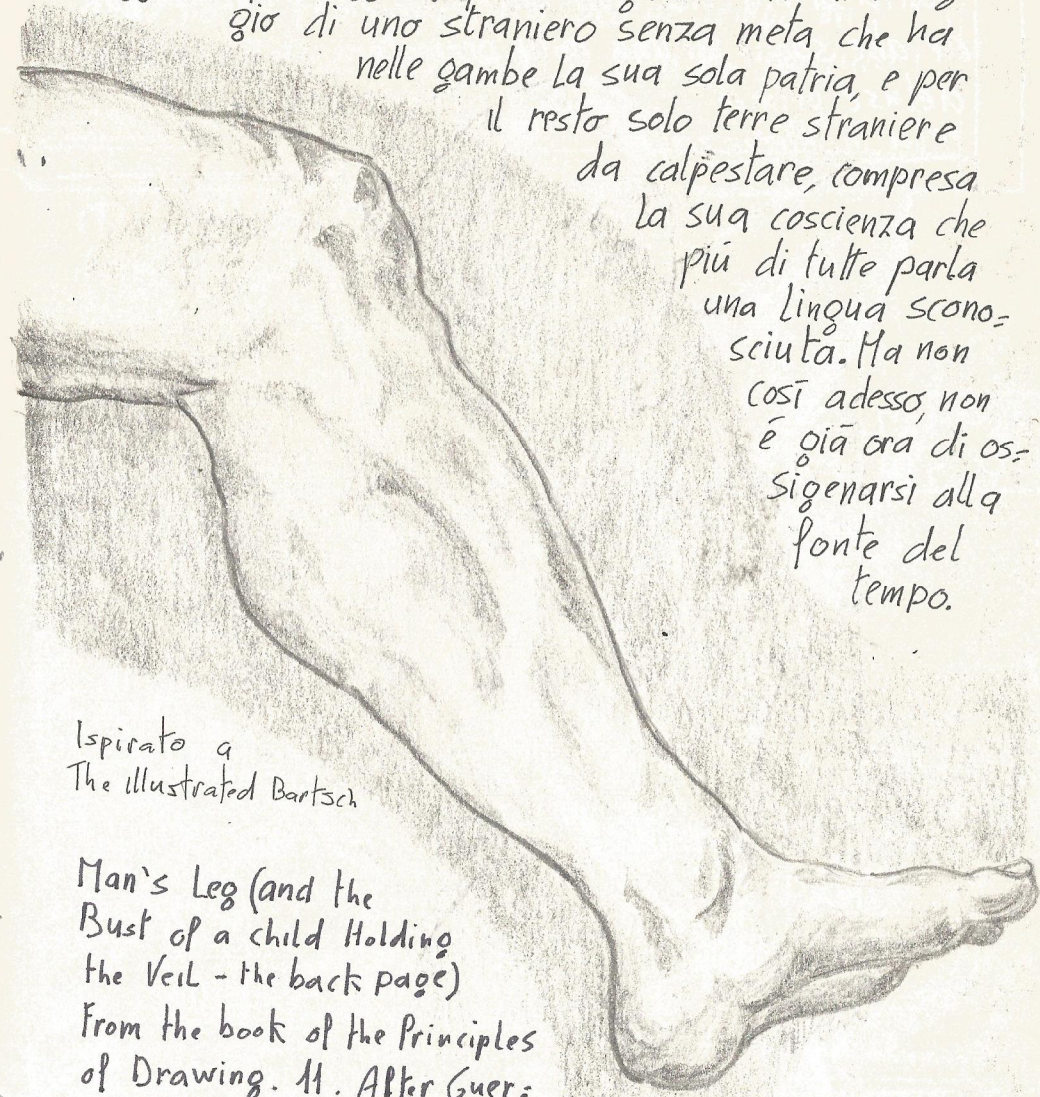 gio di uno straniero senza meta che ha
nelle gambe la sua sola patria, e per
il resto solo terre straniere
da calpestare, compresa
la sua coscienza che
piú di tutte parla
una lingua scono=
sciuta. Ma non
cosī adesso, non
é giā ora di os=
sigenarsi alla
fonte del
tempo.
Ispirato a
The Illustrated Bartsch
Man's Leg (and the
Bust of a child Holding
the Veil - the back page)
From the book of the Principles
of Drawing. 11. After Guer=